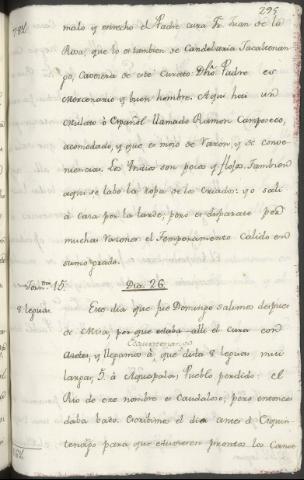 295
malo y estrecho el Padre cura Fr. Juan de la
Rosa, que lo es tambien de Candelaria Yacatenan-
go, Cavecera de este Curato: Dho Padre es
Mercenario y buen hombre. Aqui hai un
Mulato ò Español llamado Ramon Camposeco,
acomodado, y que es niño de Varon, y de conve-
niencia. Los Indios son pocos y flojos. Tambien
aqui se labo la ropa de los criados: yo sali
à casa por la tarde; pero es disparate por
muchas razones el Temperamento Calido en
sumo grado.
Jorn. 15. Dia. 26.
8 leguas. Este dia que fue Domingo salimos despues
de Misa, por que estaba alli el cura con
Aseten, y llegamos à que dista 8 leguas mui
largas, 5. à Aquapala, Pueblo perdido: el
Rio de ese nombre es Caudaloso; pero entonces
daba bado. Escribime el dia antes à
para que estuvieren prontos los